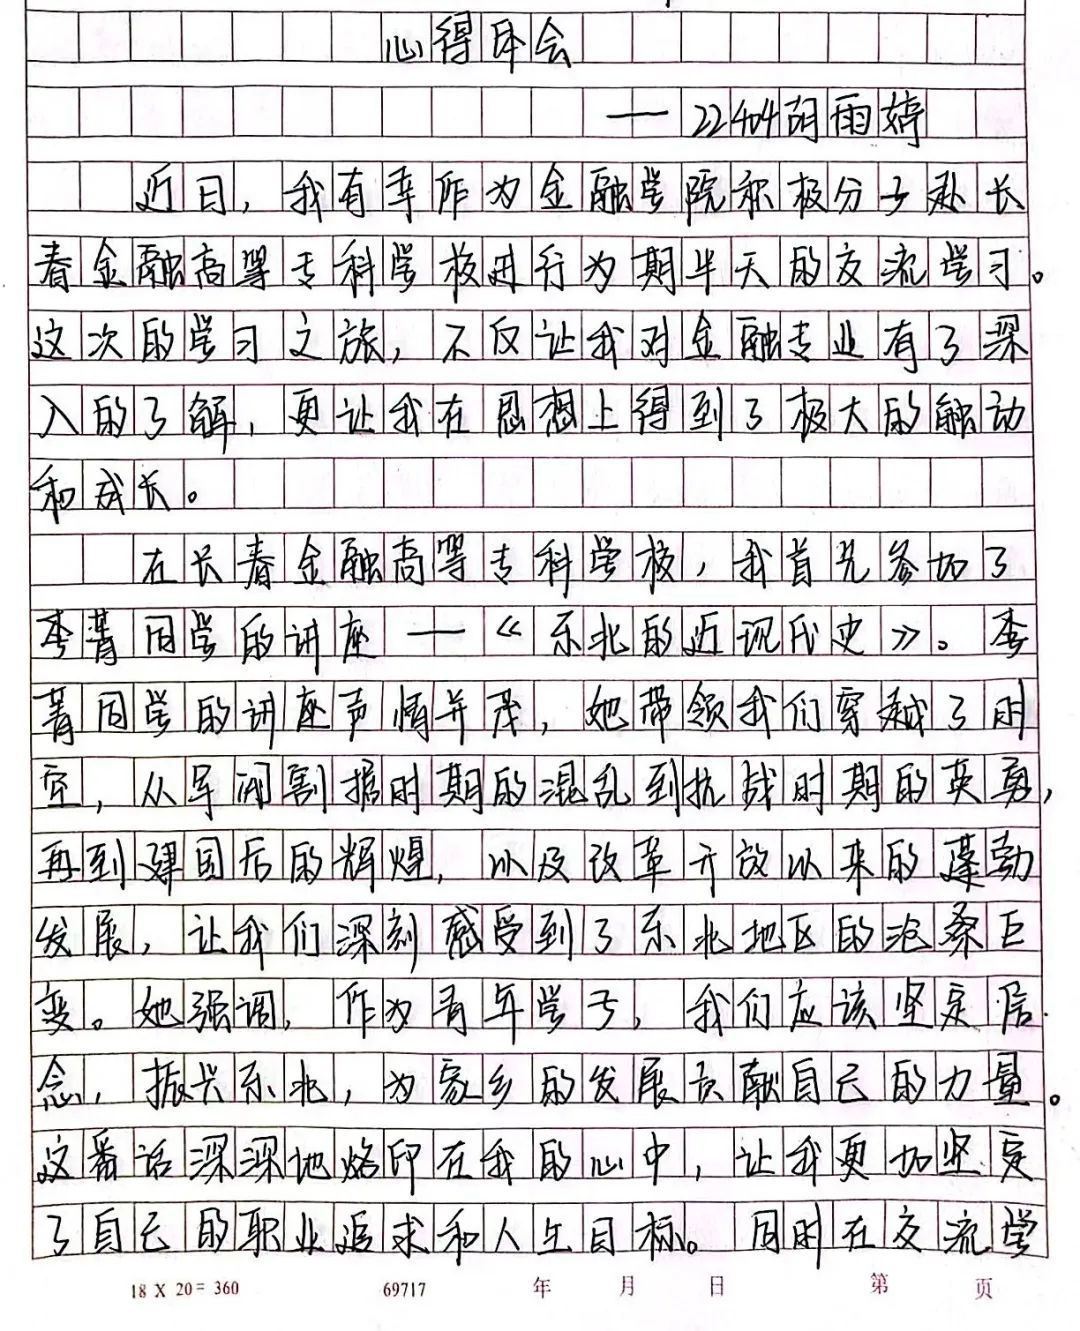 心得体会
——22404胡雨婷
近日，我有幸作为金融学院积极分子赴长
春金融高等专科学校进行为期半天的交流学习。
这次的学习之旅，不仅让我对金融专业有了深
入的了解，更让我在思想上得到了极大的触动
和成长。
在长春金融高等专科学校，我首先参加了
李菁同学的讲座——《东北的近现代史》。李
菁同学的讲座声情并茂，她带领我们穿越了时
空，从军阀割据时期的混乱到抗战时期的英勇，
再到建国后的辉煌，以及改革开放以来的蓬勃
发展，让我们深刻感受到了东北地区的沧桑巨
变。她强调，作为青年学子，我们应该坚定信
念，振兴东北，为家乡的发展贡献自己的力量。
这番话深深地烙印在我的心中，让我更加坚定
了自己的职业追求和人生目标。同时在交流学
18 X 20 = 360 69717 年 月 日 第 页